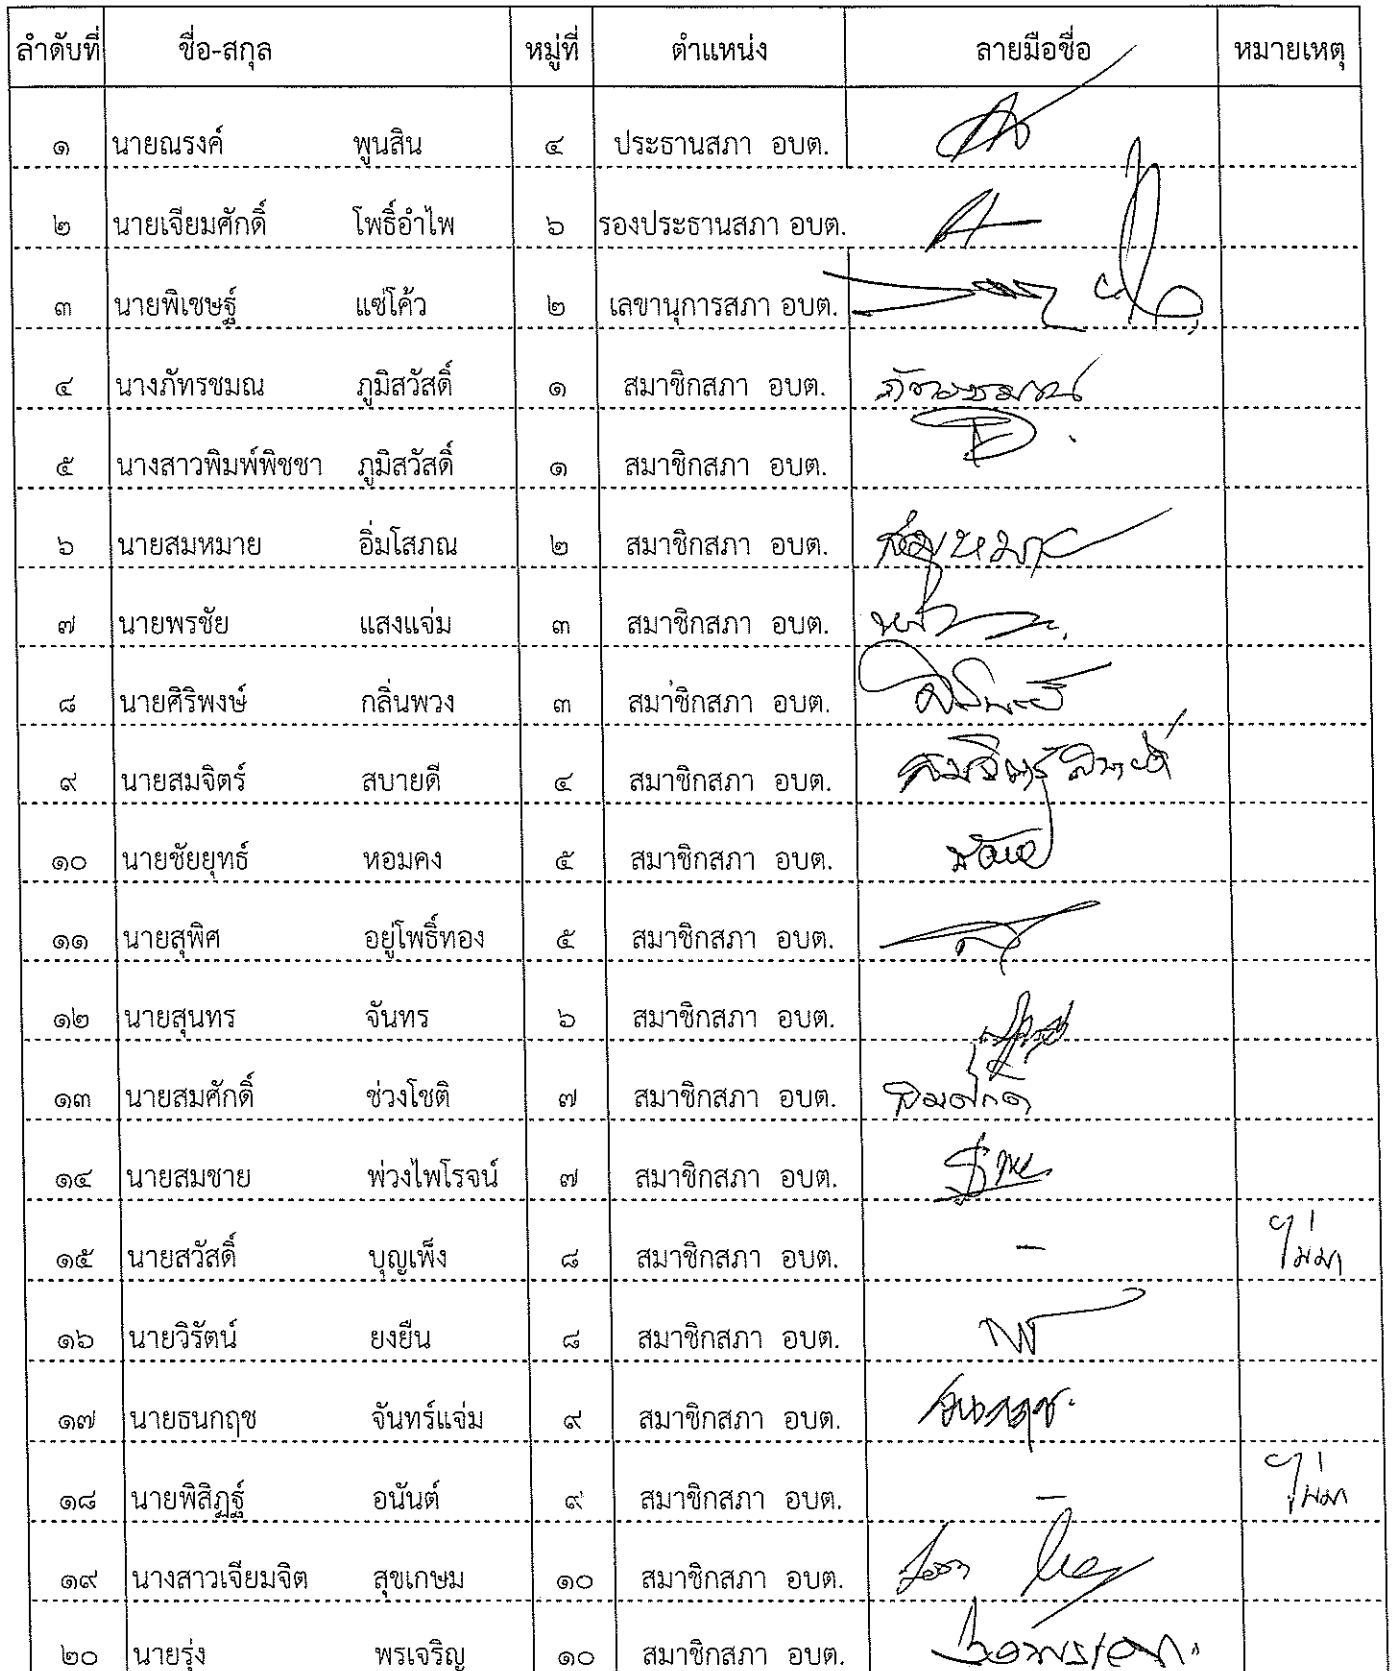 ลำดับที่ ชื่อ-สกุล หมู่ที่ ตำแหน่ง ลายมือชื่อ หมายเหตุ
๑ นายณรงค์ พูนสิน ๔ ประธานสภา อบต.
๒ นายเจียมศักดิ์ โพธิ์อำไพ ๖ รองประธานสภา อบต.
๓ นายพิเชษฐ์ แซ่โค้ว ๒ เลขานุการสภา อบต.
๔ นางภัทรชมณ ภูมิสวัสดิ์ ๑ สมาชิกสภา อบต.
๕ นางสาวพิมพ์พิชชา ภูมิสวัสดิ์ ๑ สมาชิกสภา อบต.
๖ นายสมหมาย อิ่มโสภณ ๒ สมาชิกสภา อบต. สมหมาย
๗ นายพรชัย แสงแจ่ม ๓ สมาชิกสภา อบต.
๘ นายศิริพงษ์ กลิ่นพวง ๓ สมาชิกสภา อบต.
๙ นายสมจิตร์ สบายดี ๔ สมาชิกสภา อบต. สมจิตร์ สบายดี
๑๐ นายชัยยุทธ์ หอมคง ๕ สมาชิกสภา อบต.
๑๑ นายสุพิศ อยู่โพธิ์ทอง ๕ สมาชิกสภา อบต.
๑๒ นายสุนทร จันทร ๖ สมาชิกสภา อบต.
๑๓ นายสมศักดิ์ ช่วงโชติ ๗ สมาชิกสภา อบต. สมศักดิ์
๑๔ นายสมชาย พ่วงไพโรจน์ ๗ สมาชิกสภา อบต.
๑๕ นายสวัสดิ์ บุญเพ็ง ๘ สมาชิกสภา อบต. - ไม่มา
๑๖ นายวิรัตน์ ยงยืน ๘ สมาชิกสภา อบต.
๑๗ นายธนกฤช จันทร์แจ่ม ๙ สมาชิกสภา อบต. ธนกฤช
๑๘ นายพิสิฏฐ์ อนันต์ ๙ สมาชิกสภา อบต. - ไม่มา
๑๙ นางสาวเจียมจิต สุขเกษม ๑๐ สมาชิกสภา อบต.
๒๐ นายรุ่ง พรเจริญ ๑๐ สมาชิกสภา อบต.